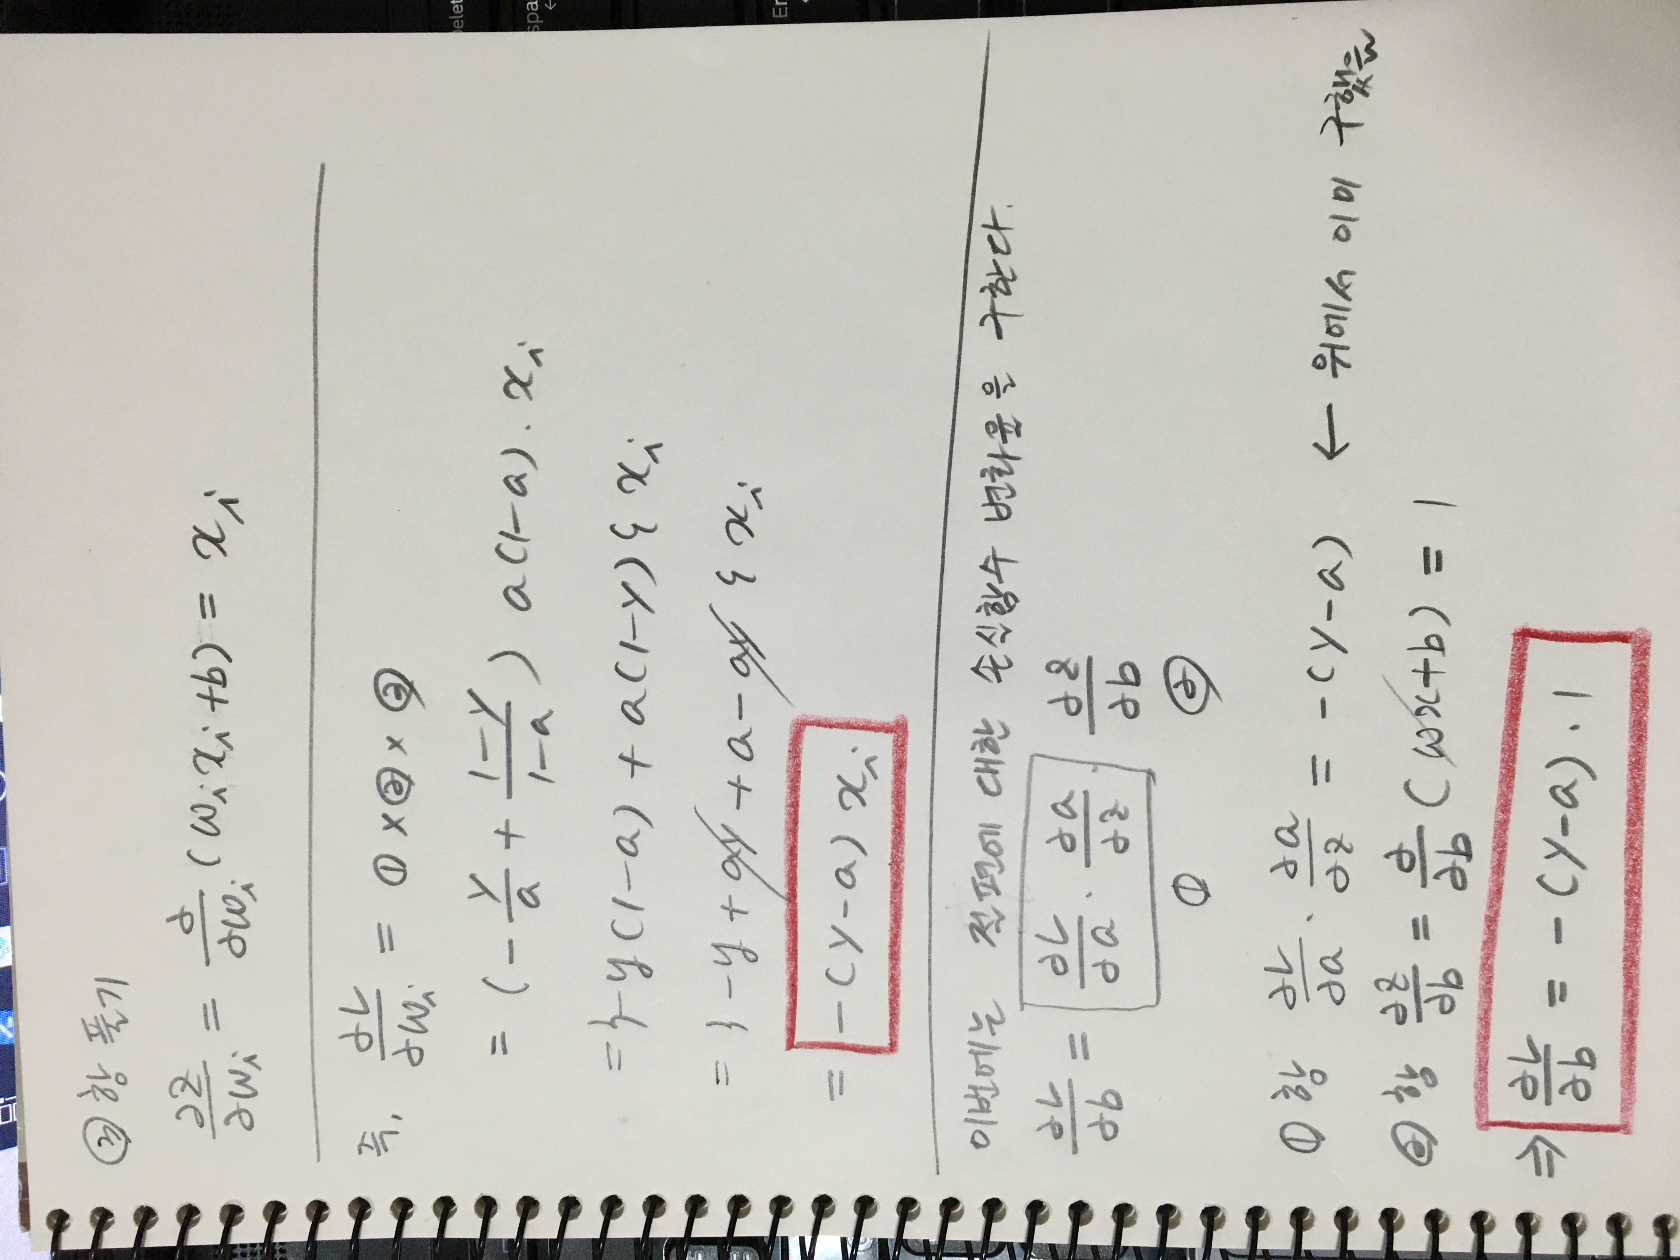 ③항 풀기
∂z/∂wᵢ = ∂/∂wᵢ (wᵢxᵢ+b) = xᵢ
즉, ∂L/∂wᵢ = ① × ② × ③
= (- y/a + 1-y/1-a) a(1-a) · xᵢ
= {-y(1-a) + a(1-y)} xᵢ
= {-y + ay + a - ay} xᵢ
= -(y-a) xᵢ
이번에는 절편에 대한 손실함수 변화율을 구한다.
∂L/∂b = ∂L/∂a · ∂a/∂z · ∂z/∂b
① ②
①항 ∂L/∂a · ∂a/∂z = -(y-a) ← 위에서 이미 구했음
②항 ∂z/∂b = ∂/∂b (wx+b) = 1
⇒ ∂L/∂b = -(y-a) · 1